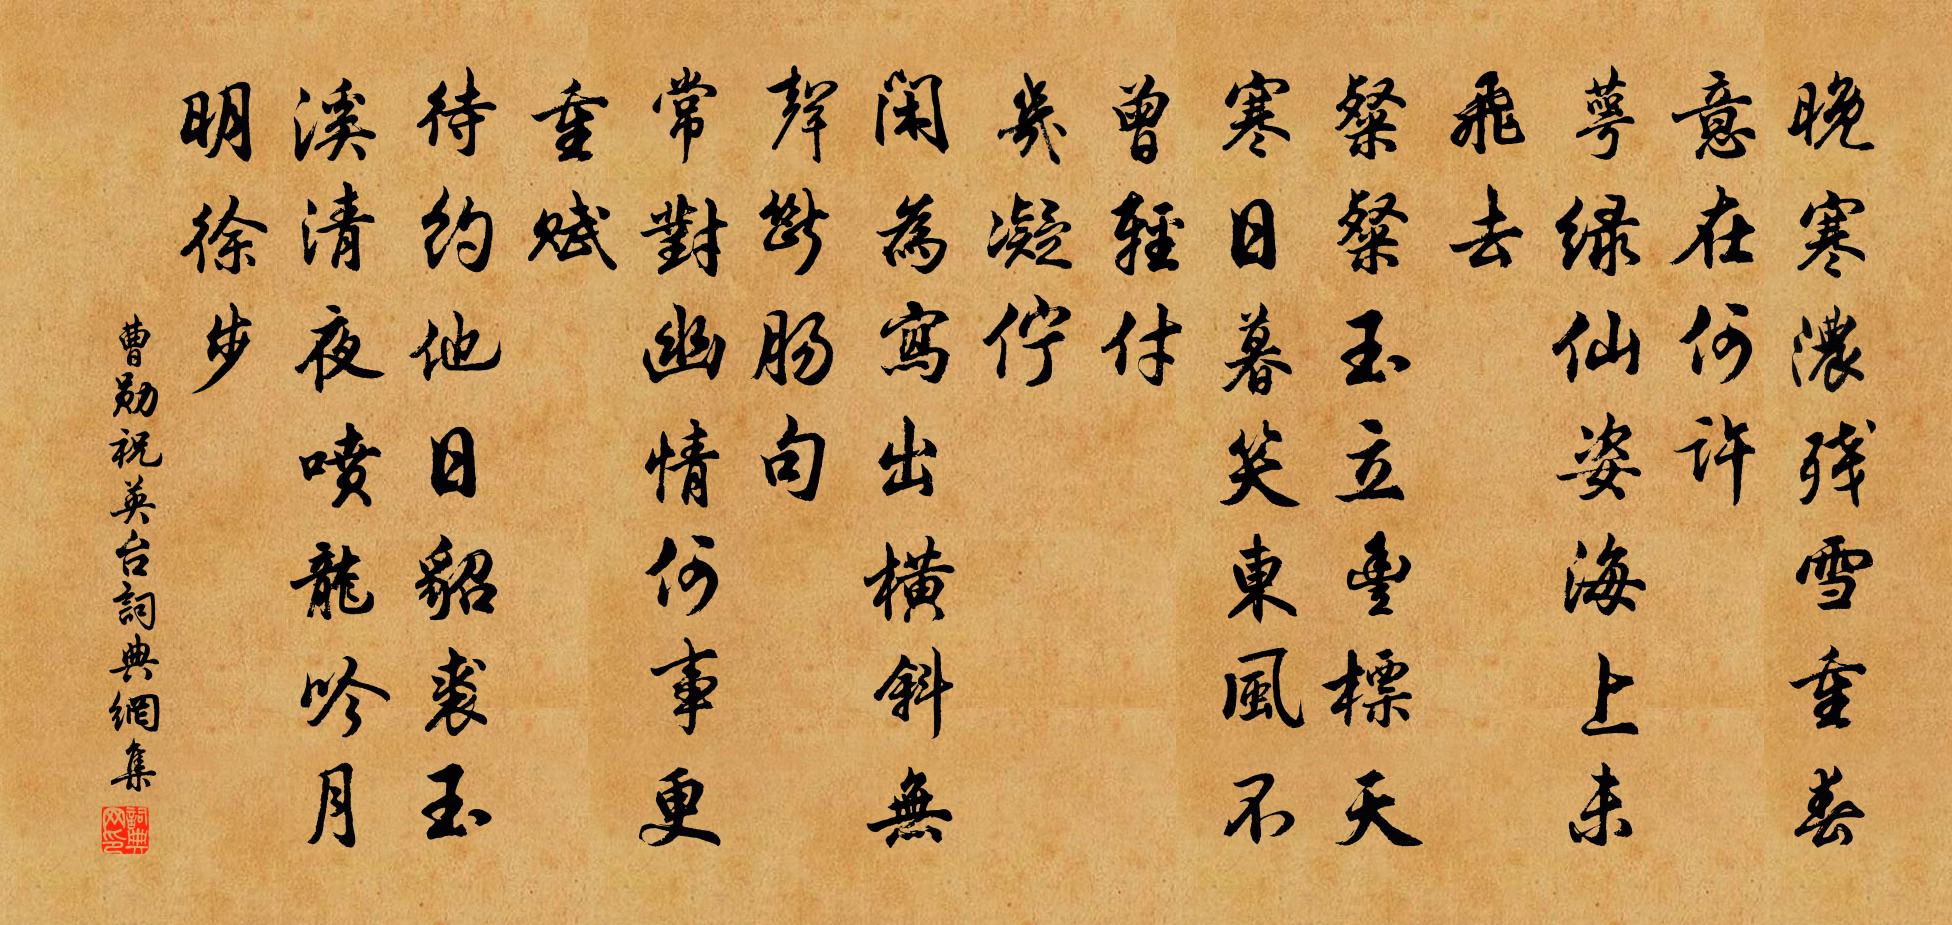 晚寒濃残雪重春
意在何許
萼緑仙姿海上未
飛去
粲粲玉立豊標天
寒日暮笑東風不
曾輕付
幾凝佇
閑為寫出橫斜無
聲斷腸句
常對幽情何事更
重賦
待約他日貂裘玉
溪清夜噴龍吟月
明徐步
曹勛祝英台詞典網集
詞典网印